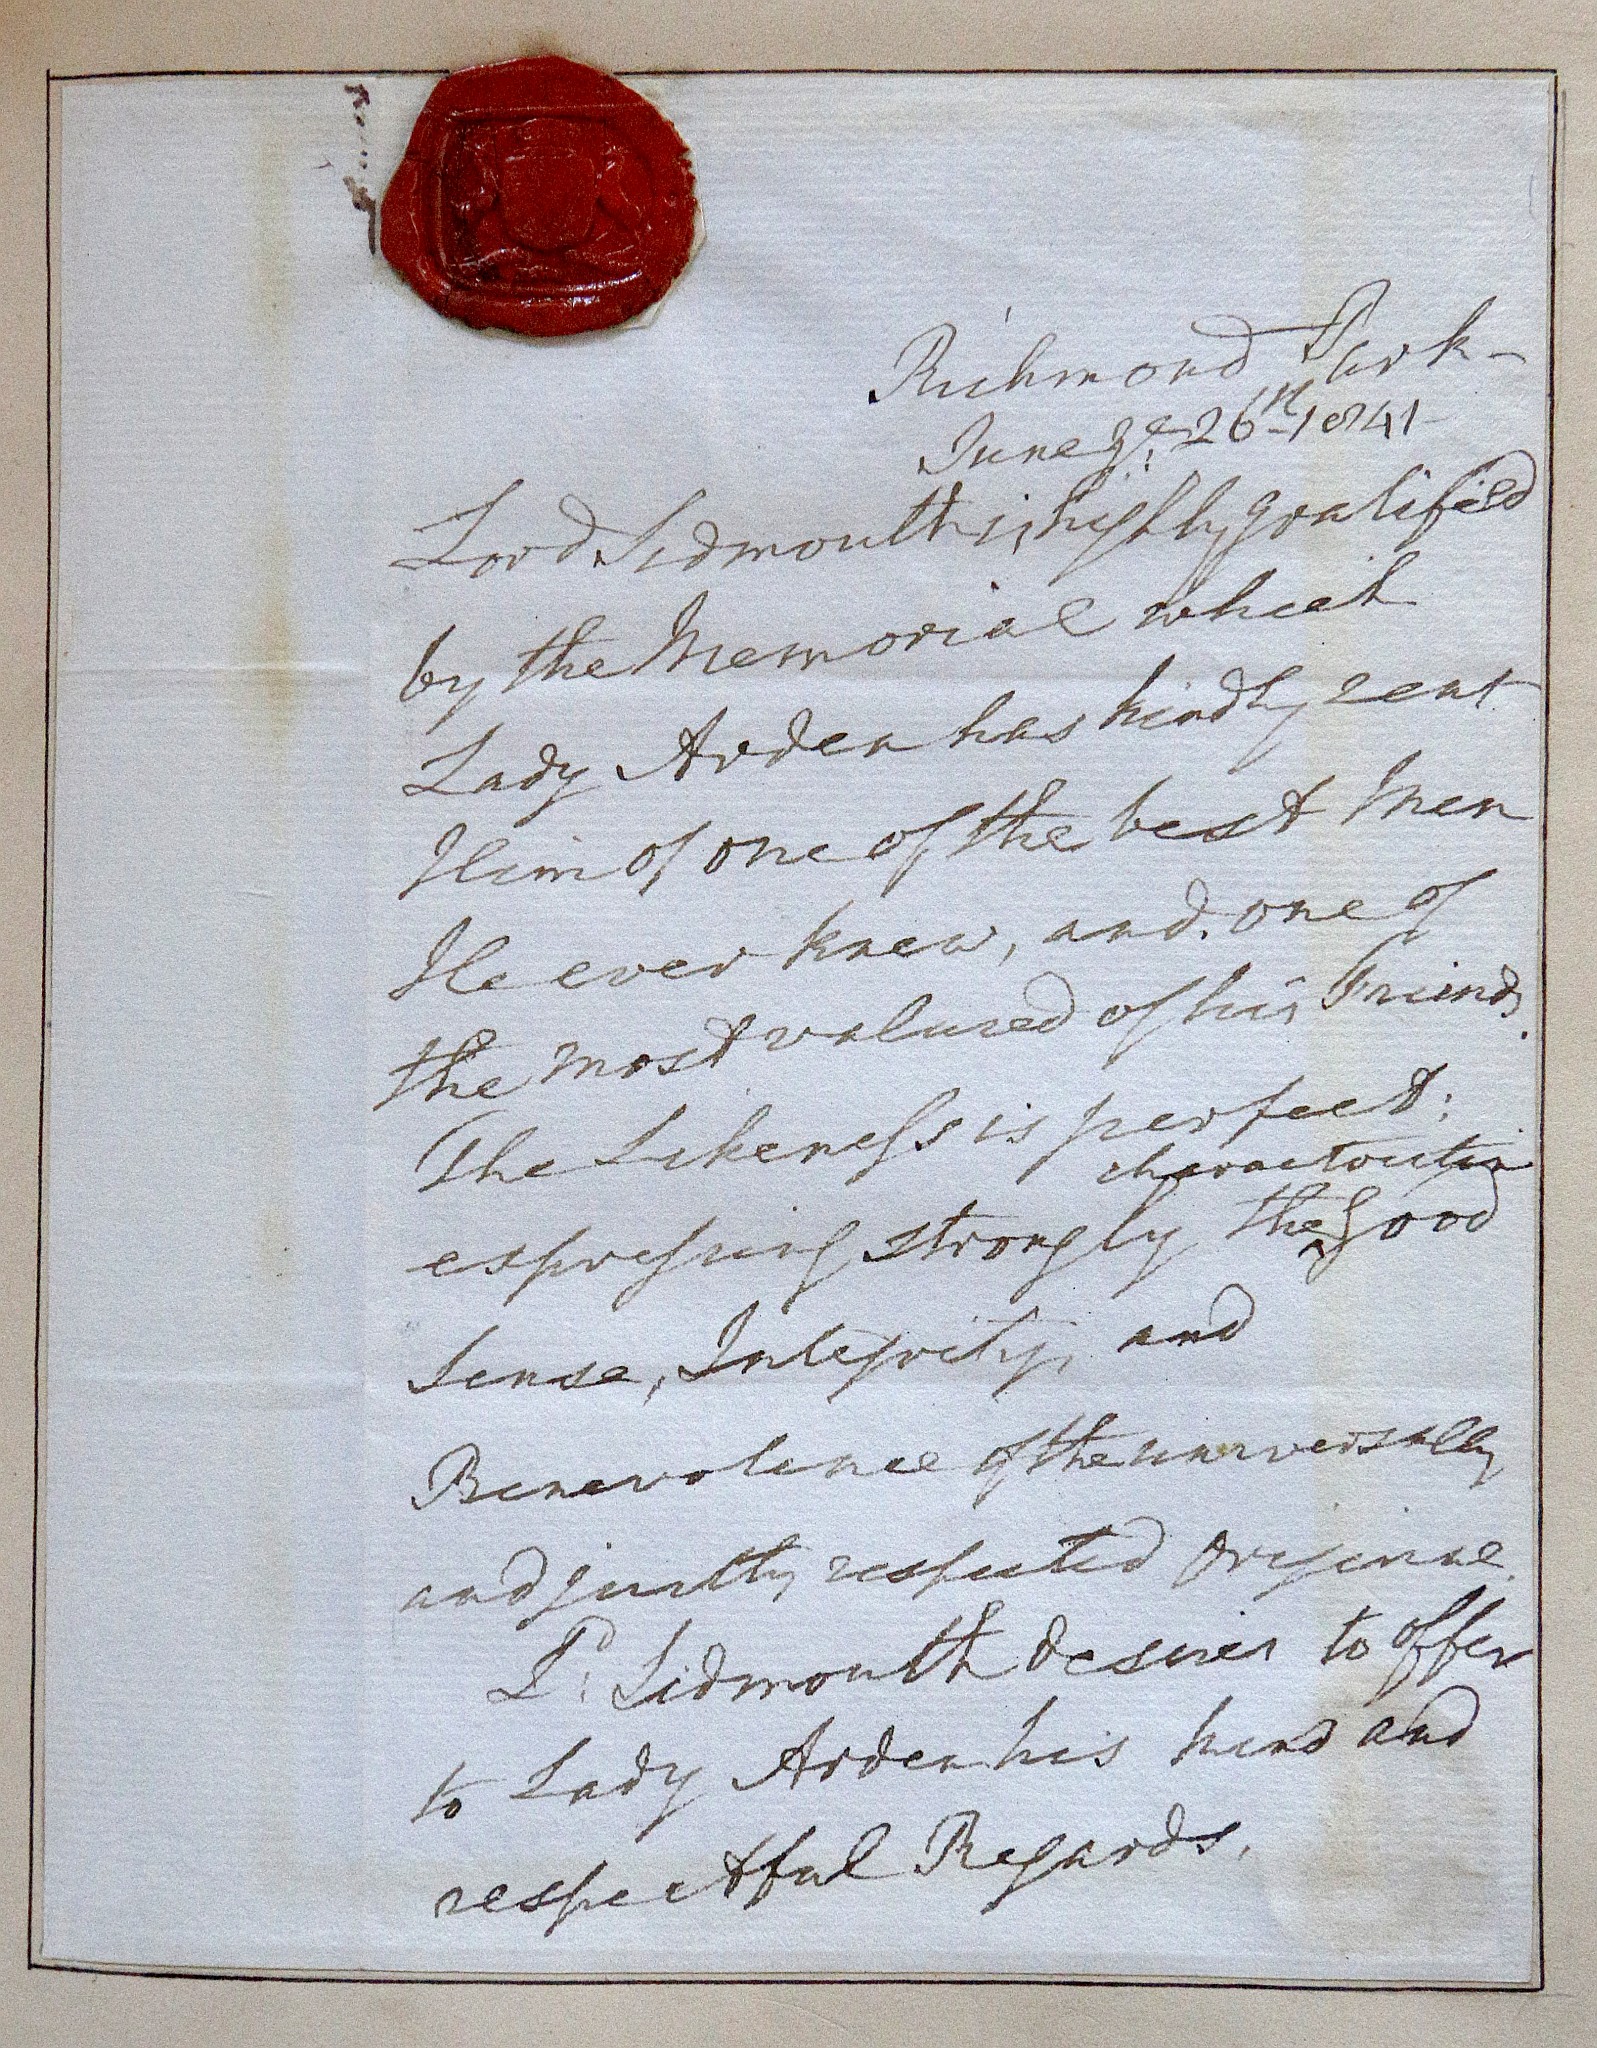 Richmond Park –
June ye. 26th 1841 –
Lord Sidmouth is highly gratified
by the Memorial which
Lady Arden has kindly sent
Him of one of the best Men
He ever knew, and one of
the most valued of his Friends.
The Likeness is perfect;
characteristic
expressing strongly the ^ Good
Sense, Integrity, and
Benevolence of the universally
and justly respected Original.
Ld. Sidmouth desires to offer
to Lady Arden his kind and
respectful Regards.